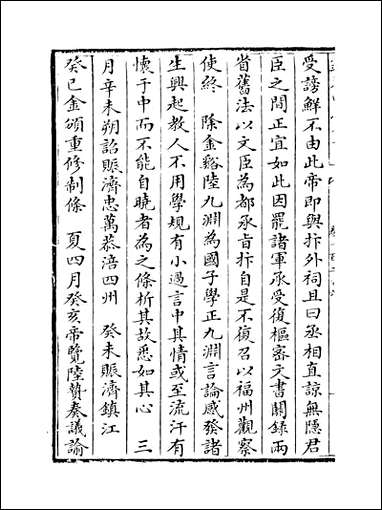 受謗鮮不由此帝即與抃外祠且曰丞相直諒無隱君
臣之間正宜如此因罷諸軍承受復樞密文書關錄兩
省舊法以文臣為都承旨抃自是不復召以福州觀察
使終 除金谿陸九淵為國子學正九淵言論感發諸
生興起教人不用學規有小過言中其情或至流汗有
懷于中而不能自曉者為之條析其故悉如其心 三
月辛未朔詔賑濟忠萬恭涪四州 癸未賑濟鎮江
癸巳金頒重修制條 夏四月癸亥帝覽陸贄奏議諭